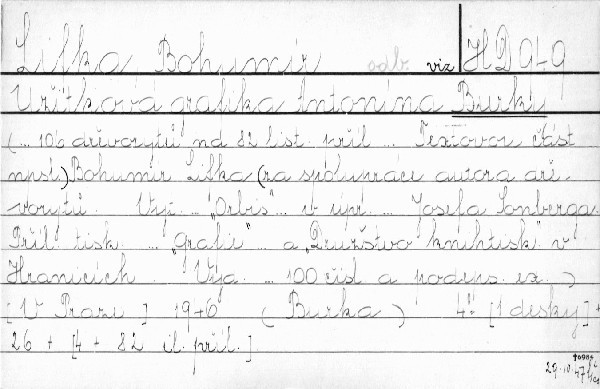 Lifka Bohumír odb. viz HD 949
Užitková grafika Antonína Burky
(... 106 dřevorytů na 82 list. příl. ... Textovou část
naps.) Bohumír Lifka (za spolupráce autora dře-
vorytů. Vyd. ... "Orbis" ... v úpr. ... Josefa Sonberga.
Příl. tisk. ... "Grafie" ... a "Družstvo knihtisk." v
Hranicích. Vyd. ... 100 čísl. a podeps. ex. )
[V Praze] 1946 (Burka) 4° [1 desky] +
26 + [4 + 82 il. příl.]
29.10.47